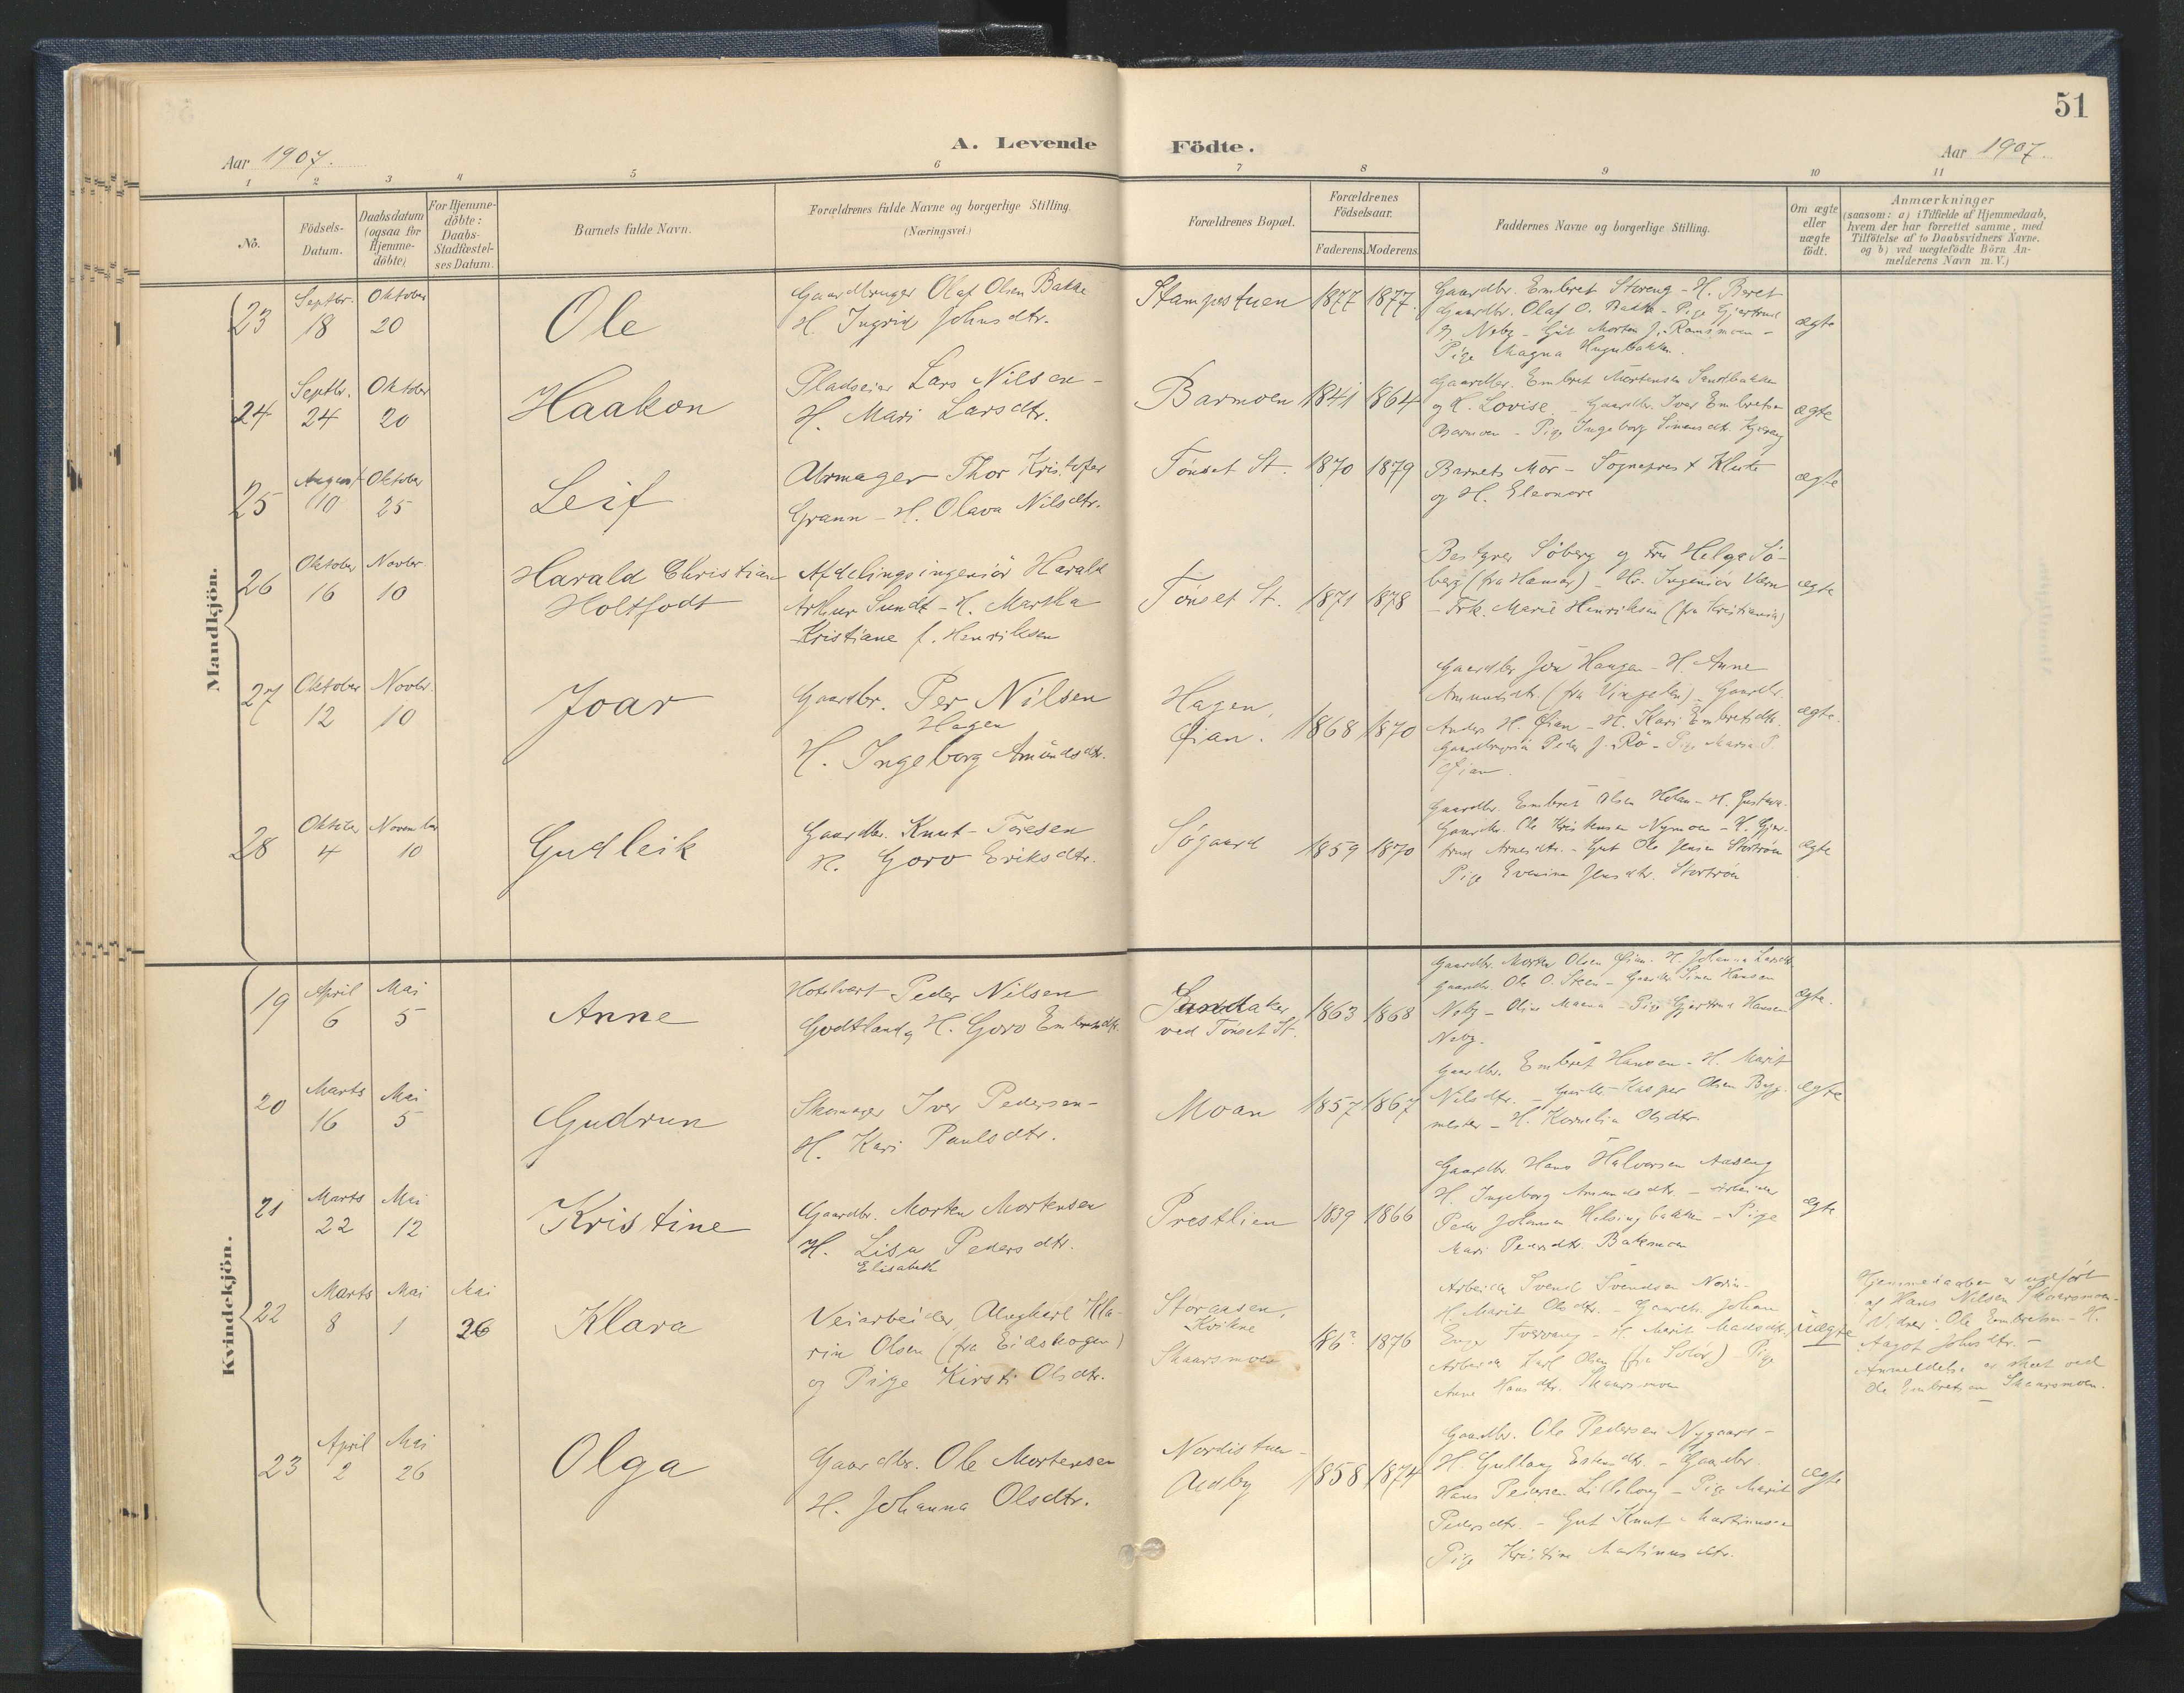 51
A. Levende Födte.
Aar 1907.
Aar 1907.
1 2 3 4 5 6 7 8 9 10 11
No.
Födsels-Datum.
Daabsdatum (ogsaa for Hjemme-döbte)
For Hjemme-döbte: Daabs-Stadfæstel-ses Datum.
Barnets fulde Navn.
Forældrenes fulde Navne og borgerlige Stilling. (Næringsvei.)
Forældrenes Bopæl.
Forældrenes Födselsaar.
Faderens. Moderens
Faddernes Navne og borgerlige Stilling.
Om ægte eller uægte födt.
Anmærkninger
(saasom: a) i Tilfælde af Hjemmedaab,
hvem der har forrettet samme, med
Tilföielse af to Daabsvidners Navne.
og b) ved uægtefödte Börn An-
melderens Navn m. V.)
Mandkjön.
23 Septbr. 18 Oktober 20
Ole
Gaardbruger Olaf Olsen Bakke
H. Ingrid Johnsdtr.
Stampestuen 1877 1877.
Gaardbr. Embret Storeng - H. Beret
Gaardbr. Olaf O. Bakke - Pige Gjertrud
Neby - Gut Morten J. Ramsmoen -
Pige Magna
ægte
24 Septbr. 24 Oktober 20
Haakon
Pladseier Lars Nilsen -
H. Mari Larsdtr.
Barmoen 1841 1864
Gaardbr. Embret Mortensen Sandbakken
og H. Lovise - Gaardbr. Ivar Embretsen
Barmoen - Pige Ingeborg Simensdtr.
ægte
25 August 10 Oktober 25
Leif
Urmager Thor Kristofer
Grann - H. Olava Nilsdtr.
Tönset St. 1870 1879
Barnets Mor - Sogneprest
og H. Eleonore
ægte
26 Oktober 16 Novbr. 10
Harald Christian
Holtfodt
Afdelingsingeniör Harald
Arthur Sundt - H. Martha
Kristiane f. Henriksen
Tönset St. 1871 1878
Bestyrer Söberg og Fru Helga Sö-
berg (fra Hamar) - Hr. Ingeniör
- Frk. Marie Henriksen (fra Kristiania)
ægte
27 Oktober 12 Novbr. 10
Joar
Gaardbr. Per Nilsen
Hagen
H. Ingeborg Amundsdtr.
Hagen,
Öian. 1868 1870
Gaardbr Jon Haugen - H Anne
Amundsdtr. (fra Vingelen) - Gaardbr.
Anders H. Öian - H. Kari Embretsdtr.
Peder J. Rö - Pige Marie P.
Öian.
ægte.
28 Oktober 4 November 10
Gudleik
Gaardbr. Knut Toresen
H. Goro Eriksdtr.
Sögaard 1859 1870
Gaardbr. Embret Olsen Holen - H. Gustava.
Gaardbr. Ole Kristensen Nymoen - H. Gjer-
trud Arnesdtr. - Gut Ole Jensen Stortröen
Pige Jensdtr. Stortröen
ægte
Kvindekjön.
19 April 6 Mai 5
Anne
Hotelvert Peder Nilsen
Godtland og H. Goro Embretsdtr.
Sandaker
ved Tönset St. 1863 1868
Gaardbr. Morten Olsen Öian. H. Johanna Larsdtr
Gaardbr Ole O. Steen - Gaardbr Simen Hansen
Neby - - Pige Gjertrud Hansen
Neby.
ægte.
20 Marts 16 Mai 5
Gudrun
Skomager Iver Pedersen -
H. Kari Paulsdtr.
Moan 1857 1867
Gaardbr. Embret Hansen - H. Marit
Nilsdtr. - Gaardbr Kasper Olsen Byg-
mester - H. Kornelia Olsdtr.
ægte
21 Marts 22 Mai 12
Kristine
Gaardbr. Morten Mortensen
H. Lisa Pedersdtr.
Elisabeth
Prestlien 1839 1866
Gaardbr. Hans Halvorsen Aaseng
H. Ingeborg Amundsdtr. - Arbeider
Peder Johansen Helsingbakken - Pige
Mari Pedersdtr. Bakmoen
ægte
22 Marts 8 Mai 1 Mai 26
Klara
Veiarbeider, Kla-
rin Olsen (fra Eidskogen)
og Pige Kirsti Olsdtr.
Storaasen,
Kvikne
Skaarsmoen 186? 1876
Arbeider Svend Svendsen
H. Marit Olsdtr. - Gaardbr. Johan
- H. Marit Madsdtr.
Arbeider Karl Olsen (fra Solör) Pige
Anne Hansdtr. Skaarsmoen
uægte
Hjemmedaaben er udfört
af Hans Nilsen Skaarsmoen -
Vidner: Ole Embretsen - H.
Aagot Johsdtr. -
Anmeldelse er skeet ved
Ole Embretsen Skaarsmoen.
23 April 2 Mai 26
Olga
Gaardbr. Ole Mortensen
H. Johanna Olsdtr.
Nordistuen -
Audby 1858 1874
Gaardbr. Ole Pedersen Nygaard -
H. Gullaug Estendtr. - Gaardbr.
Hans Pedersen - Pige Marit
Pedersdtr. - Gut Knut Martinusen
Pige Kristine Martinusdtr.
ægte